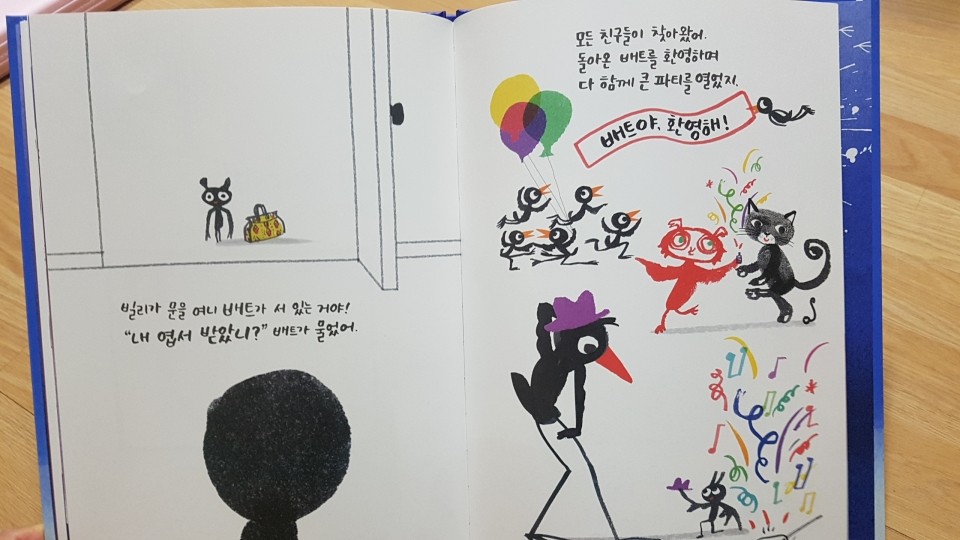 빌리가 문을 여니 배트가 서 있는 거야!
"내 엽서 받았니?" 배트가 물었어.
모든 친구들이 찾아왔어.
돌아온 배트를 환영하며
다 함께 큰 파티를 열었지.
배트야, 환영해!